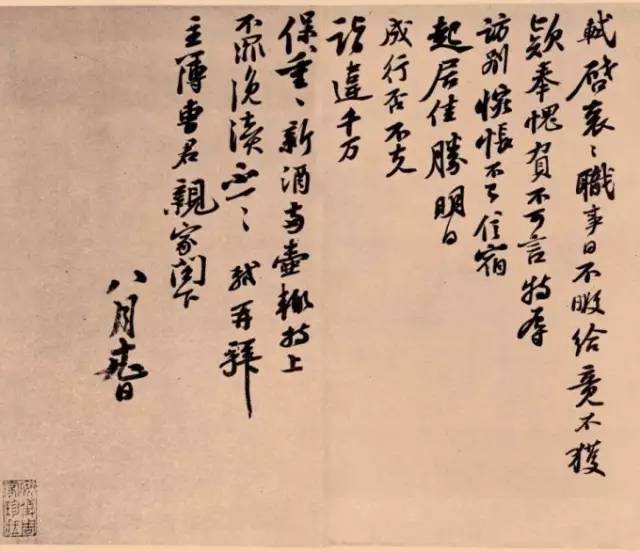 軾啓衰〻職事日不暇給竟不獲
款奉愧負不可言特辱
訪別惋悵不已信宿
起居佳勝明日
成行否不克
詣違千万
保重〻新酒兩壺輒持上
不罪浼瀆不一〻軾再拜
主簿曹君親家閤下
八月日